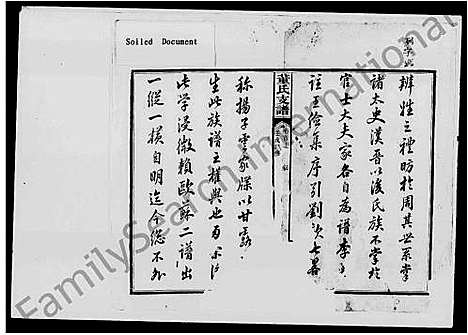 Soiled Document
辨姓之禮昉於周其世系掌
諸太史漢晉以後民族不掌於
官士大夫家各自為譜李
註王儉集序引劉七略
董氏支譜
稱揚子雲家牒以甘露
生此族譜之權輿也
此學浸微賴歐蘇二譜出
一縱一橫自明迄今您不外
FamilySearch International